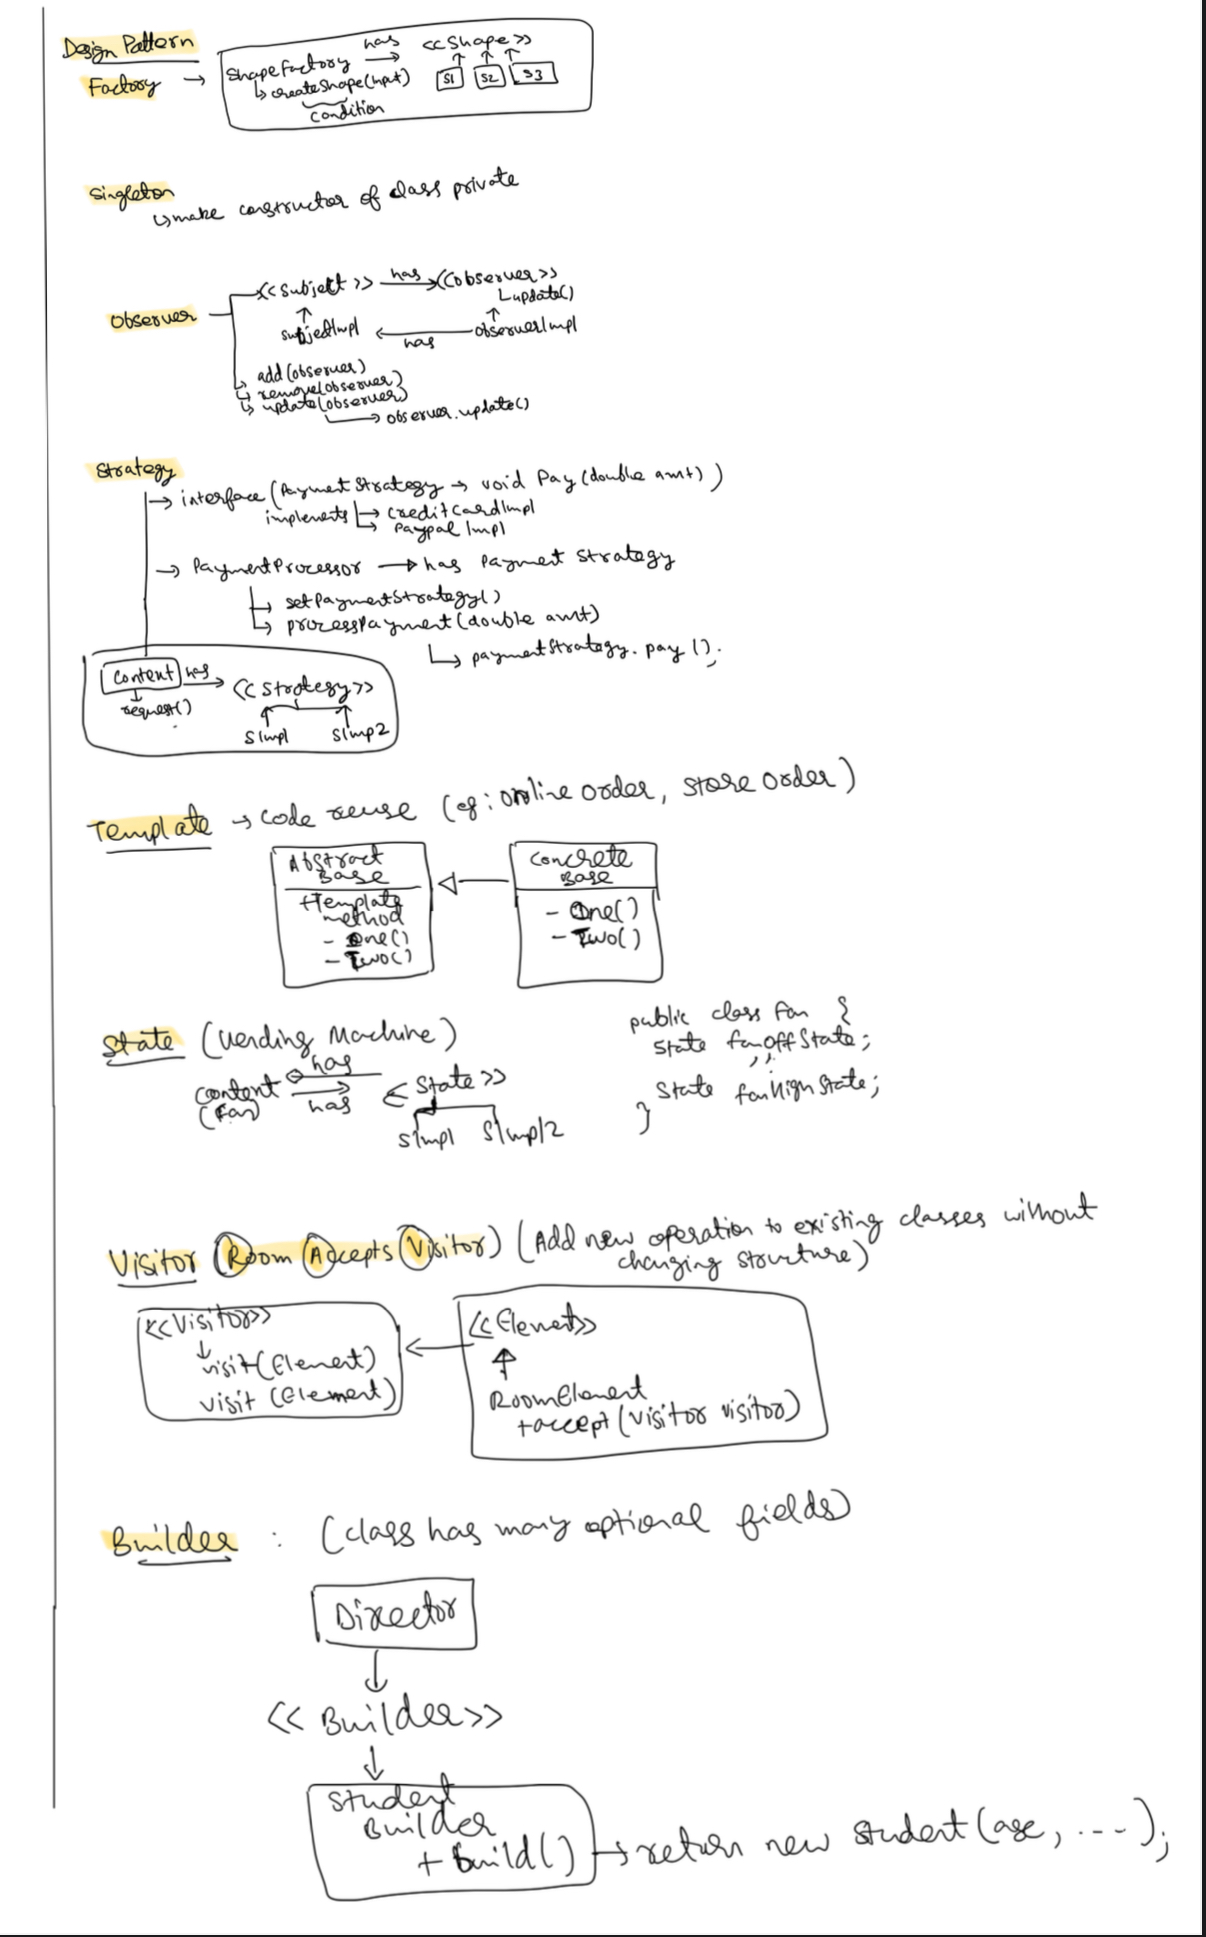 Design Pattern
Factory → ShapeFactory has → <<Shape>>
↳ createShape(input) S1 S2 S3
condition
Singleton
↳ make constructor of class private
Observer
<<Subject>> has → <<observer>>
↳ update()
subjectImpl ← has observerImpl
↳ add(observer)
↳ remove(observer)
↳ update(observer)
→ observer.update()
Strategy
→ interface (PaymentStrategy → void Pay(double amt))
implements → creditCardImpl
→ PaypalImpl
→ PaymentProcessor → has Payment Strategy
↳ setPaymentStrategy()
↳ processPayment(double amt)
↳ paymentStrategy.pay();
Content has → <<Strategy>>
request()
SImpl SImp2
Template → code reuse (eg: online order, store order)
Abstract Base
+Template method
- One()
- Two()
Concrete Base
- One()
- Two()
State (Vending Machine)
has
content → <State>>
(Fan) has
SImpl SImpl2
public class Fan {
State fanOffState;
State fanHighState;
}
Visitor (Room Accepts Visitor) (Add new operation to existing classes without
changing structure)
<<Visitor>>
visit(Element)
visit (Element)
<<Element>>
RoomElement
+accept(Visitor visitor)
Builder : (class has many optional fields)
Director
<<Builder>>
Student
Builder
+ Build() → return new Student(age, ----);